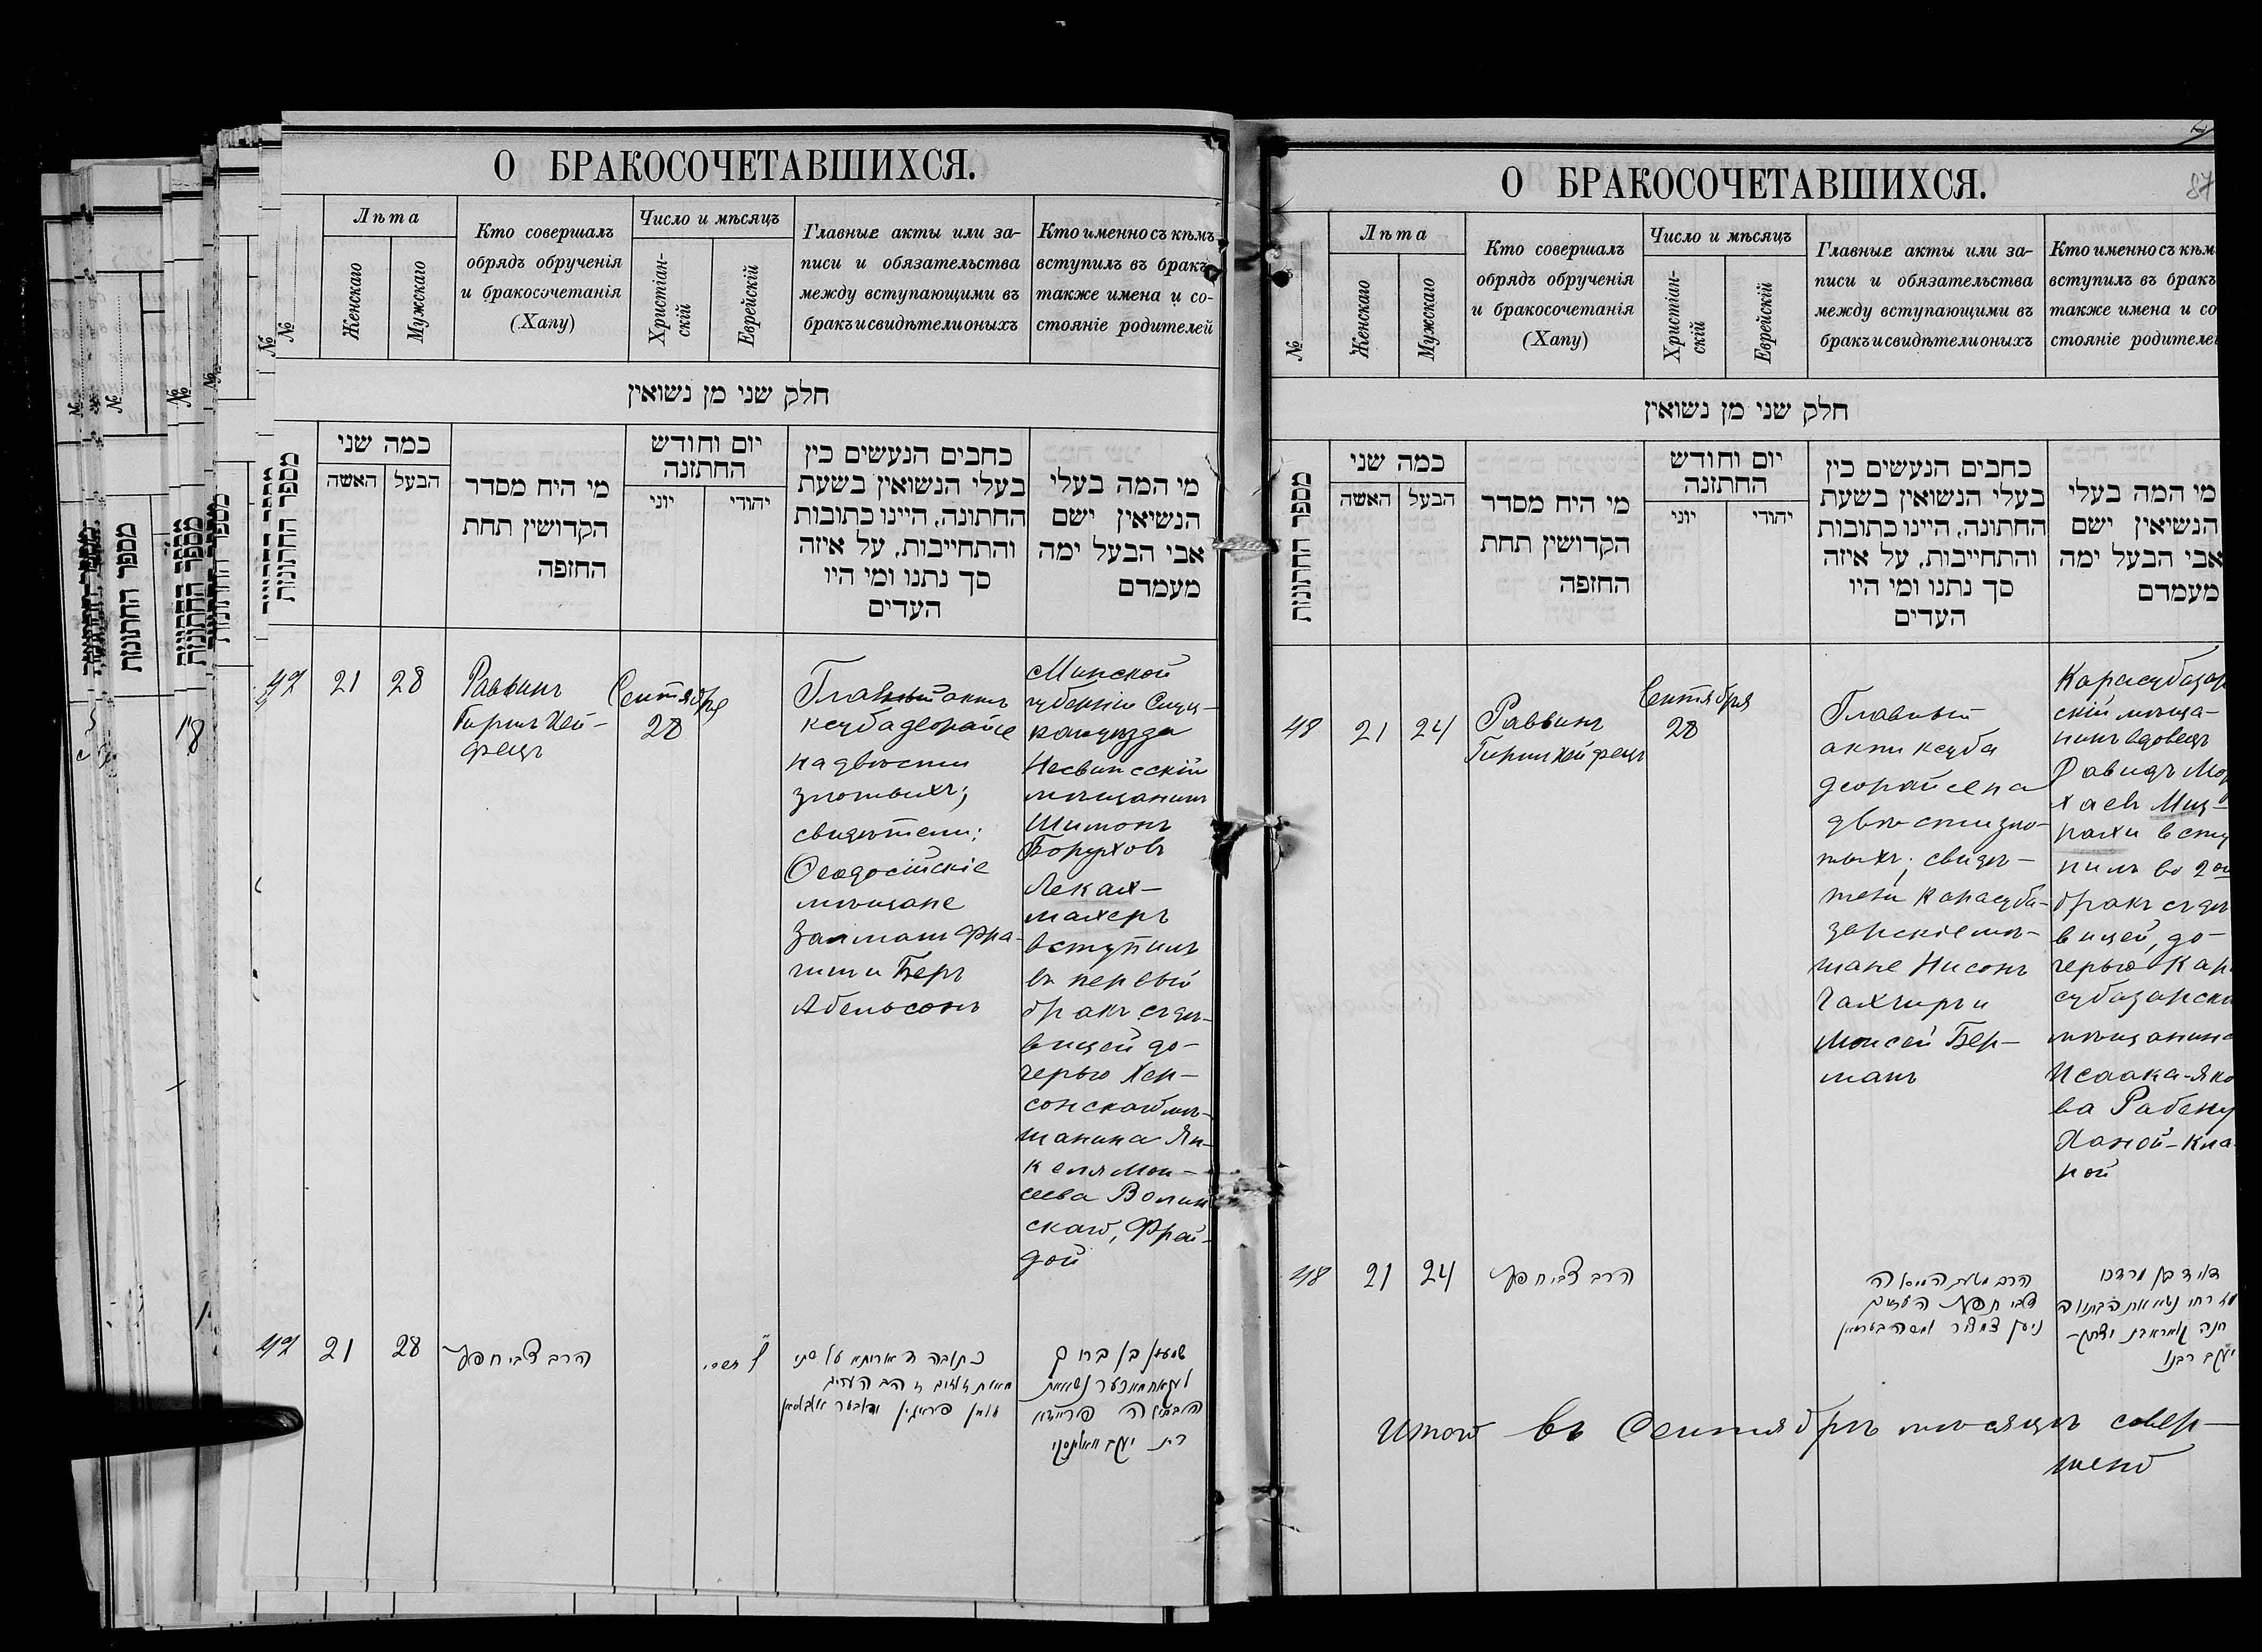 О БРАКОСОЧЕТАВШИХСЯ.
№
Лѣта
Женскаго
Мужскаго
Кто совершалъ
обрядъ обрученія
и бракосочетанія
(Хапу)
Число и мѣсяцъ
Христіан-
скій
Еврейскій
Главные акты или за-
писи и обязательства
между вступающими въ
бракъ и свидѣтели оныхъ
Кто именно съ кѣмъ
вступилъ въ бракъ
также имена и со-
стояніе родителей
חלק שני מן נשואין
מספר החתונות
כמה שני
האשה
הבעל
מי היח מסדר
הקדושין תחת
החזפה
יום וחודש
החתזנה
יוני
יהודי
כחבים הנעשים כין
בעלי הנשואין בשעת
החתונה, היינו כתובות
והתחייבות, על איזה
סך נתנו ומי היו
העדים
מי המה בעלי
הנשיאין ישם
אבי הבעל ימה
מעמדם
47
21
28
Раввинъ
Гиршъ Хей-
фецъ
Сентября
28
Главный актъ
ксуба деорайсе
на двѣсти
злотыхъ;
свидѣтели:
Ѳеодосійскіе
мѣщане
Залман Фра-
гин и Беръ
Абельсонъ
Минской
губерніи Слуц-
каго уѣзда
Несвижскій
мѣщанинъ
Шимонъ
Боруховъ
Леках-
махеръ
вступилъ
въ первый
бракъ съ дѣ-
вицей до-
черью Хер-
сонскаго мѣ-
щанина Ян-
келя Мои-
сеева Волин
скаго, Фрей-
дой
47
21
28
הרב צבי חפץ
שמעון בן ברוך
О БРАКОСОЧЕТАВШИХСЯ.
87
№
Лѣта
Женскаго
Мужскаго
Кто совершалъ
обрядъ обрученія
и бракосочетанія
(Хапу)
Число и мѣсяцъ
Христіан-
скій
Еврейскій
Главные акты или за-
писи и обязательства
между вступающими въ
бракъ и свидѣтели оныхъ
Кто именно съ кѣм
вступилъ въ бракъ
также имена и со
стояніе родителе
חלק שני מן נשואין
מספר החתונות
כמה שני
האשה
הבעל
מי היח מסדר
הקדושין תחת
החזפה
יום וחודש
החתזנה
יוני
יהודי
כחבים הנעשים כין
בעלי הנשואין בשעת
החתונה, היינו כתובות
והתחייבות, על איזה
סך נתנו ומי היו
העדים
מי המה בעלי
הנשיאין ישם
אבי הבעל ימה
מעמדם
48
21
24
Раввинъ
Гирш Хейфецъ
Сентября
28
Главный
актъ ксуба
деорайсе на
двѣсти зло-
тыхъ; свидѣ-
тели Карасуба-
зарскіе мѣ-
щане Нисонъ
и
Моисей Бер-
манъ
Карасубазар
скій мѣща-
нинъ вдовецъ
Давидъ Мор
хаевъ Миз-
рахи всту
пилъ во 2ой
бракъ съ дѣ
вицей, до-
черью Кар
субазарска
мѣщанина
Исаака-Яко
ва Рабену
Ханой-Кла-
рой
48
21
24
הרב צבי חפץ
Итого въ Сентябрѣ мѣсяцѣ совер-
шено